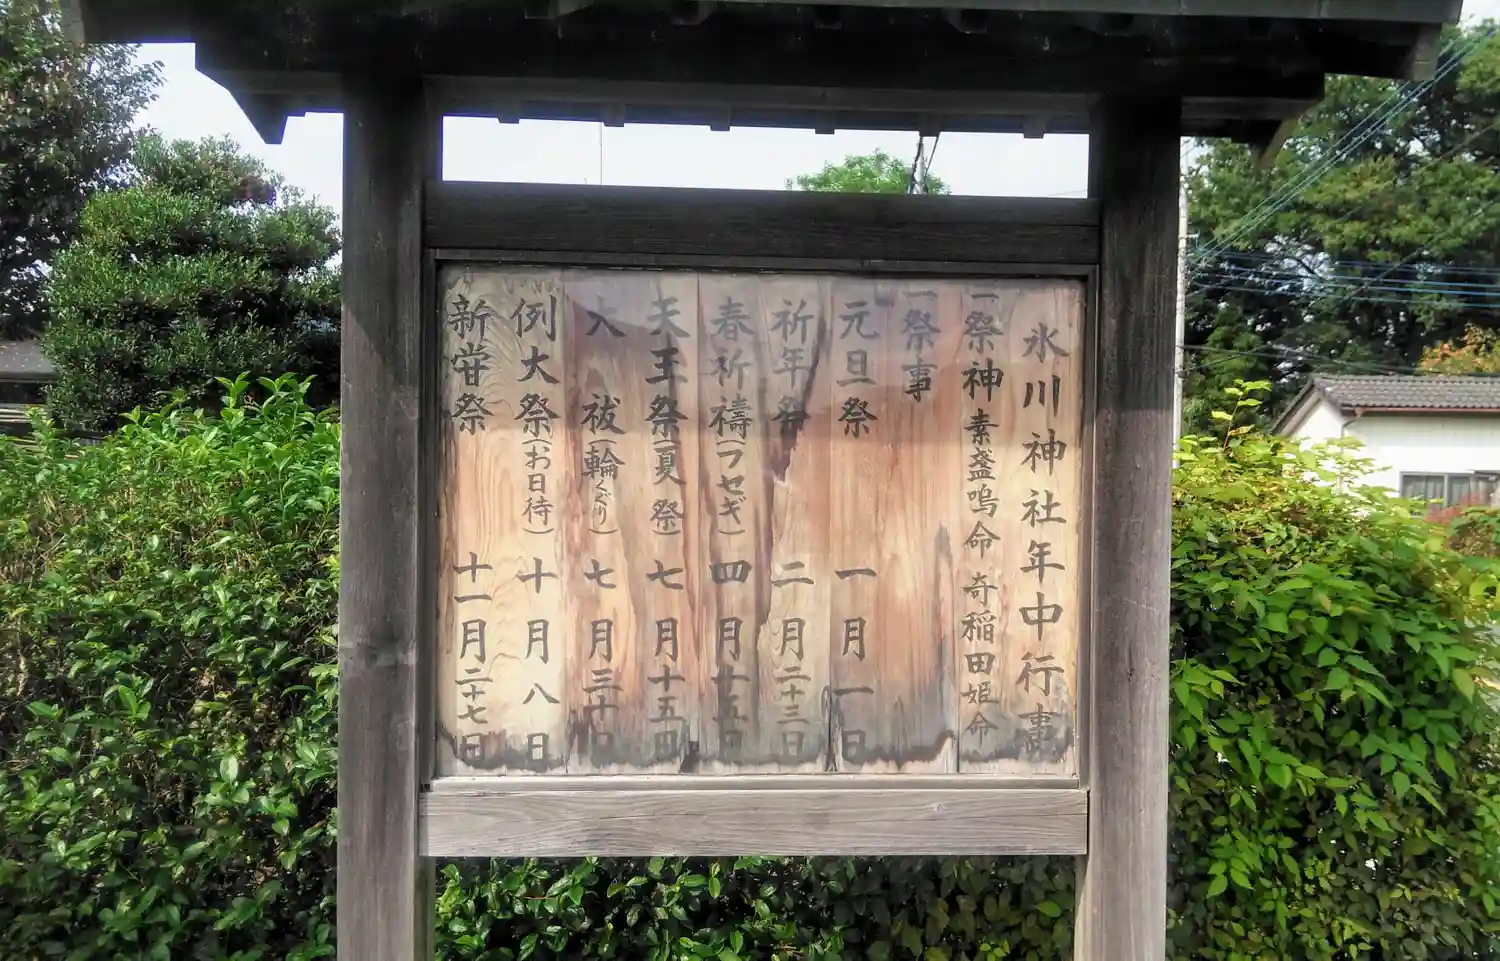 氷川神社年中行事
一祭神 素盞嗚命 奇稲田姫命
一祭事
元旦祭 一月一日
祈年祭 二月二十三日
春祈禱(フセギ) 四月十五日
天王祭(夏祭) 七月十五日
大祓(輪くぐり) 七月三十日
例大祭(お日待) 十月八日
新嘗祭 十一月二十七日